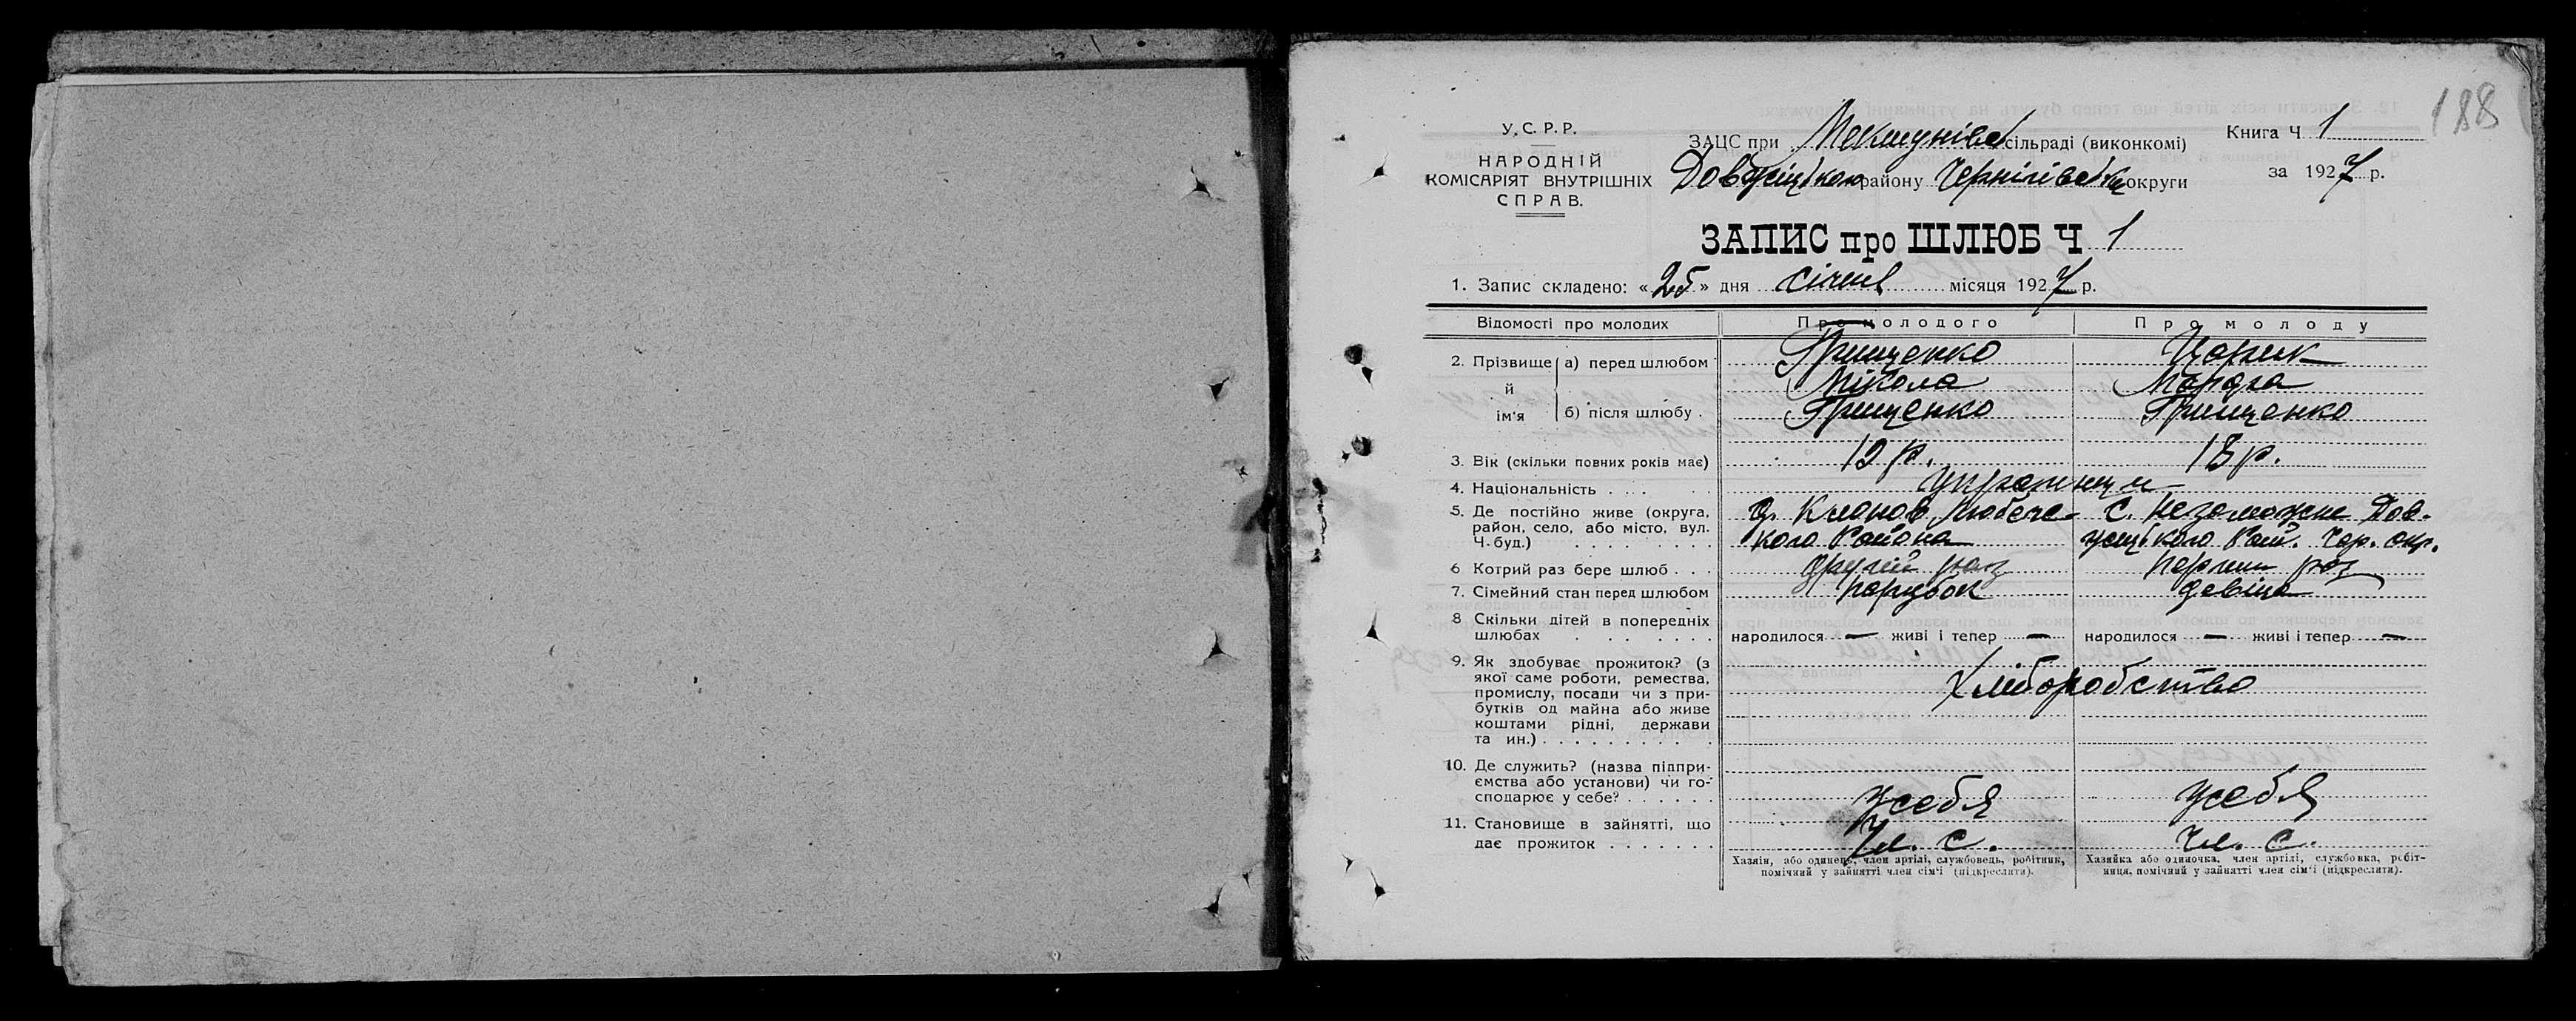 188
У.С.Р.Р.
НАРОДНІЙ
КОМІСАРІЯТ ВНУТРІШНІХ
СПРАВ.
ЗАЦС при сільраді (виконкомі)
району Чернігівськ округи
Книга Ч 1
за 1927 р.
ЗАПИС про ШЛЮБ Ч 1
1. Запис складено: «25» дня січня місяця 1927 р.
Відомості про молодих Про молодого Про молоду
2. Прізвище й ім'я а) перед шлюбом Грищенко Царик
Мікола
б) після шлюбу . Грищенко Грищенко
3. Вік (скільки повних років має) 19 р. 18 р.
4. Національність . . . українци
5. Де постійно живе (округа, х. Клонов Любече- С. Незаможне Дов-
район, село, або місто, вул. кого Района жицького Рай. Чер. окр.
Ч. буд.) . . . . . . . .
6 Котрий раз бере шлюб . . . другий раз перший раз
7. Сімейний стан перед шлюбом парубок девіца
8 Скільки дітей в попередніх
шлюбах . . . . . . . народилося — живі і тепер — народилося — живі і тепер —
9. Як здобуває прожиток? (з
якої саме роботи, ремества,
промислу, посади чи з при- Хліборобство
бутків од майна або живе
коштами рідні, держави
та ин.) . . . . . . . . . .
10. Де служить? (назва підпри-
ємства або установи) чи го-
сподарює у себе? . . . . . . усебя усебя
11. Становище в зайнятті, що
дає прожиток . . . . . . . Чл. С. Чл. С.
Хазяін, або одинець, член артілі, службовець, робітник,
помічний у зайнятті член сім'ї (підкреслити).
Хазяйка або одиночка, член артілі, службовка, робіт-
ниця, помічний у зайнятті член сім'ї (підкреслити).